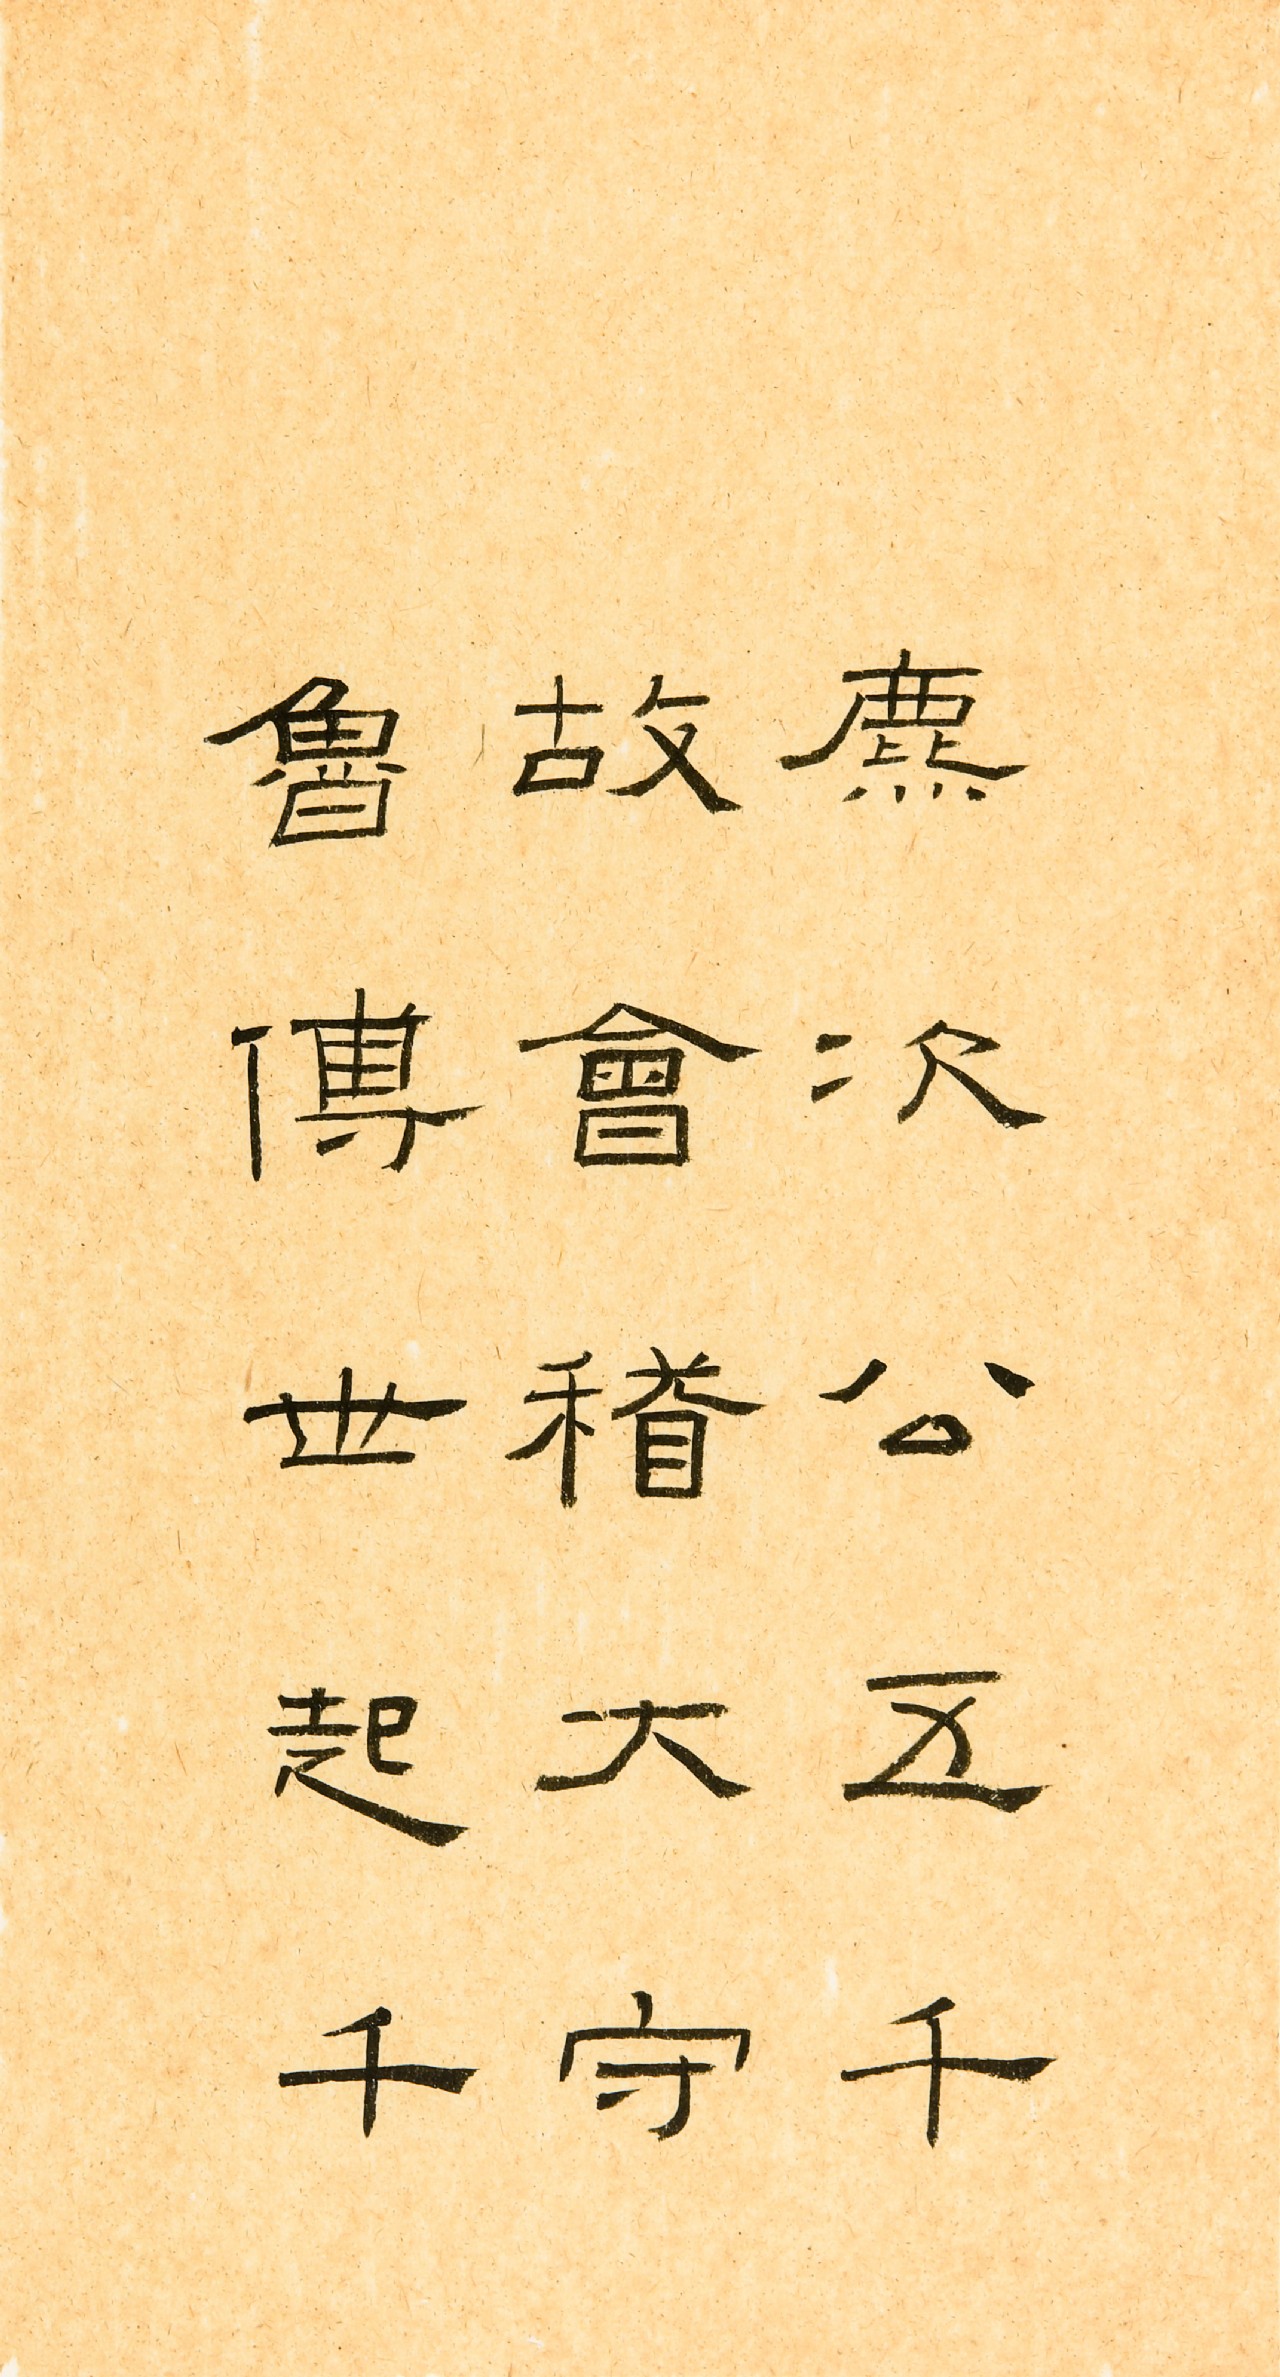 麃次公五千
故會稽大守
魯傅世起千